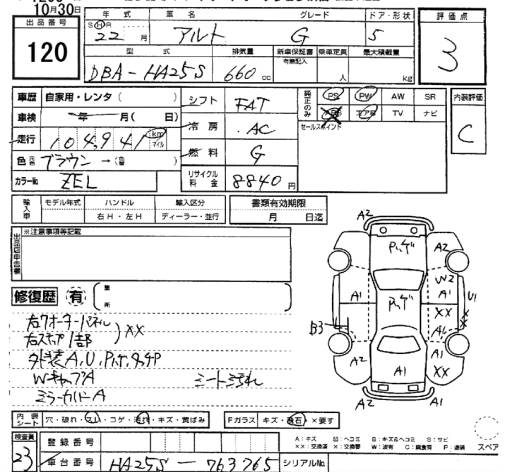 10月30日
出品番号
120
年式 車名 グレード ドア・形状
S・H 22年 アルト G 5
評価点
3
型式 排気量 新車保証書 乗車定員 最大積載量
有無記入
DBA-HA25S 660cc 人 kg
車歴 自家用・レンタ( )
車検 ー年 月( 日)
走行 104941 km マイル
色 ブラウン→(
カラーNo ZEL
シフト FAT
冷房 AC
燃料 G
リサイクル料金 8840円
純正のみ PS PW AW SR
TV ナビ
セールスポイント
内装評価
C
輸入車 モデル年式 ハンドル 輸入区分
右H・左H ディーラー・並行
書類有効期限
月 日迄
※注意事項等記載
出品店申告書
修復歴 有
箇所
右クオーターパネル
右ステップ1部
××
外装A,U,
ミラーカバーA
A2
A2 A2
W2
A1 A1 U1
XX
B3 A1
A2 A1 XX
A2 A2
内装シート 穴・破れ・スレ・コゲ・汚れ・キズ・黄ばみ
Fガラス キズ・飛石・×要す
A:キズ U:ヘコミ B:キズ&ヘコミ S:サビ
XX:交換済 X:交換要 W:波有 C:腐食有 P:塗装
スペア
検査員
23
登録番号
車台番号 HA25S-763765
シリアルNo.